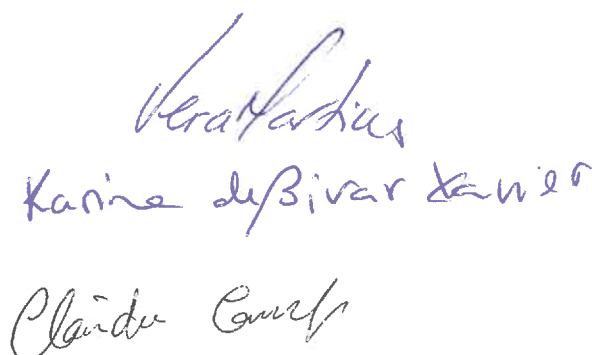 Vera Martins
Karina de Bivar Xavier
Cláudia